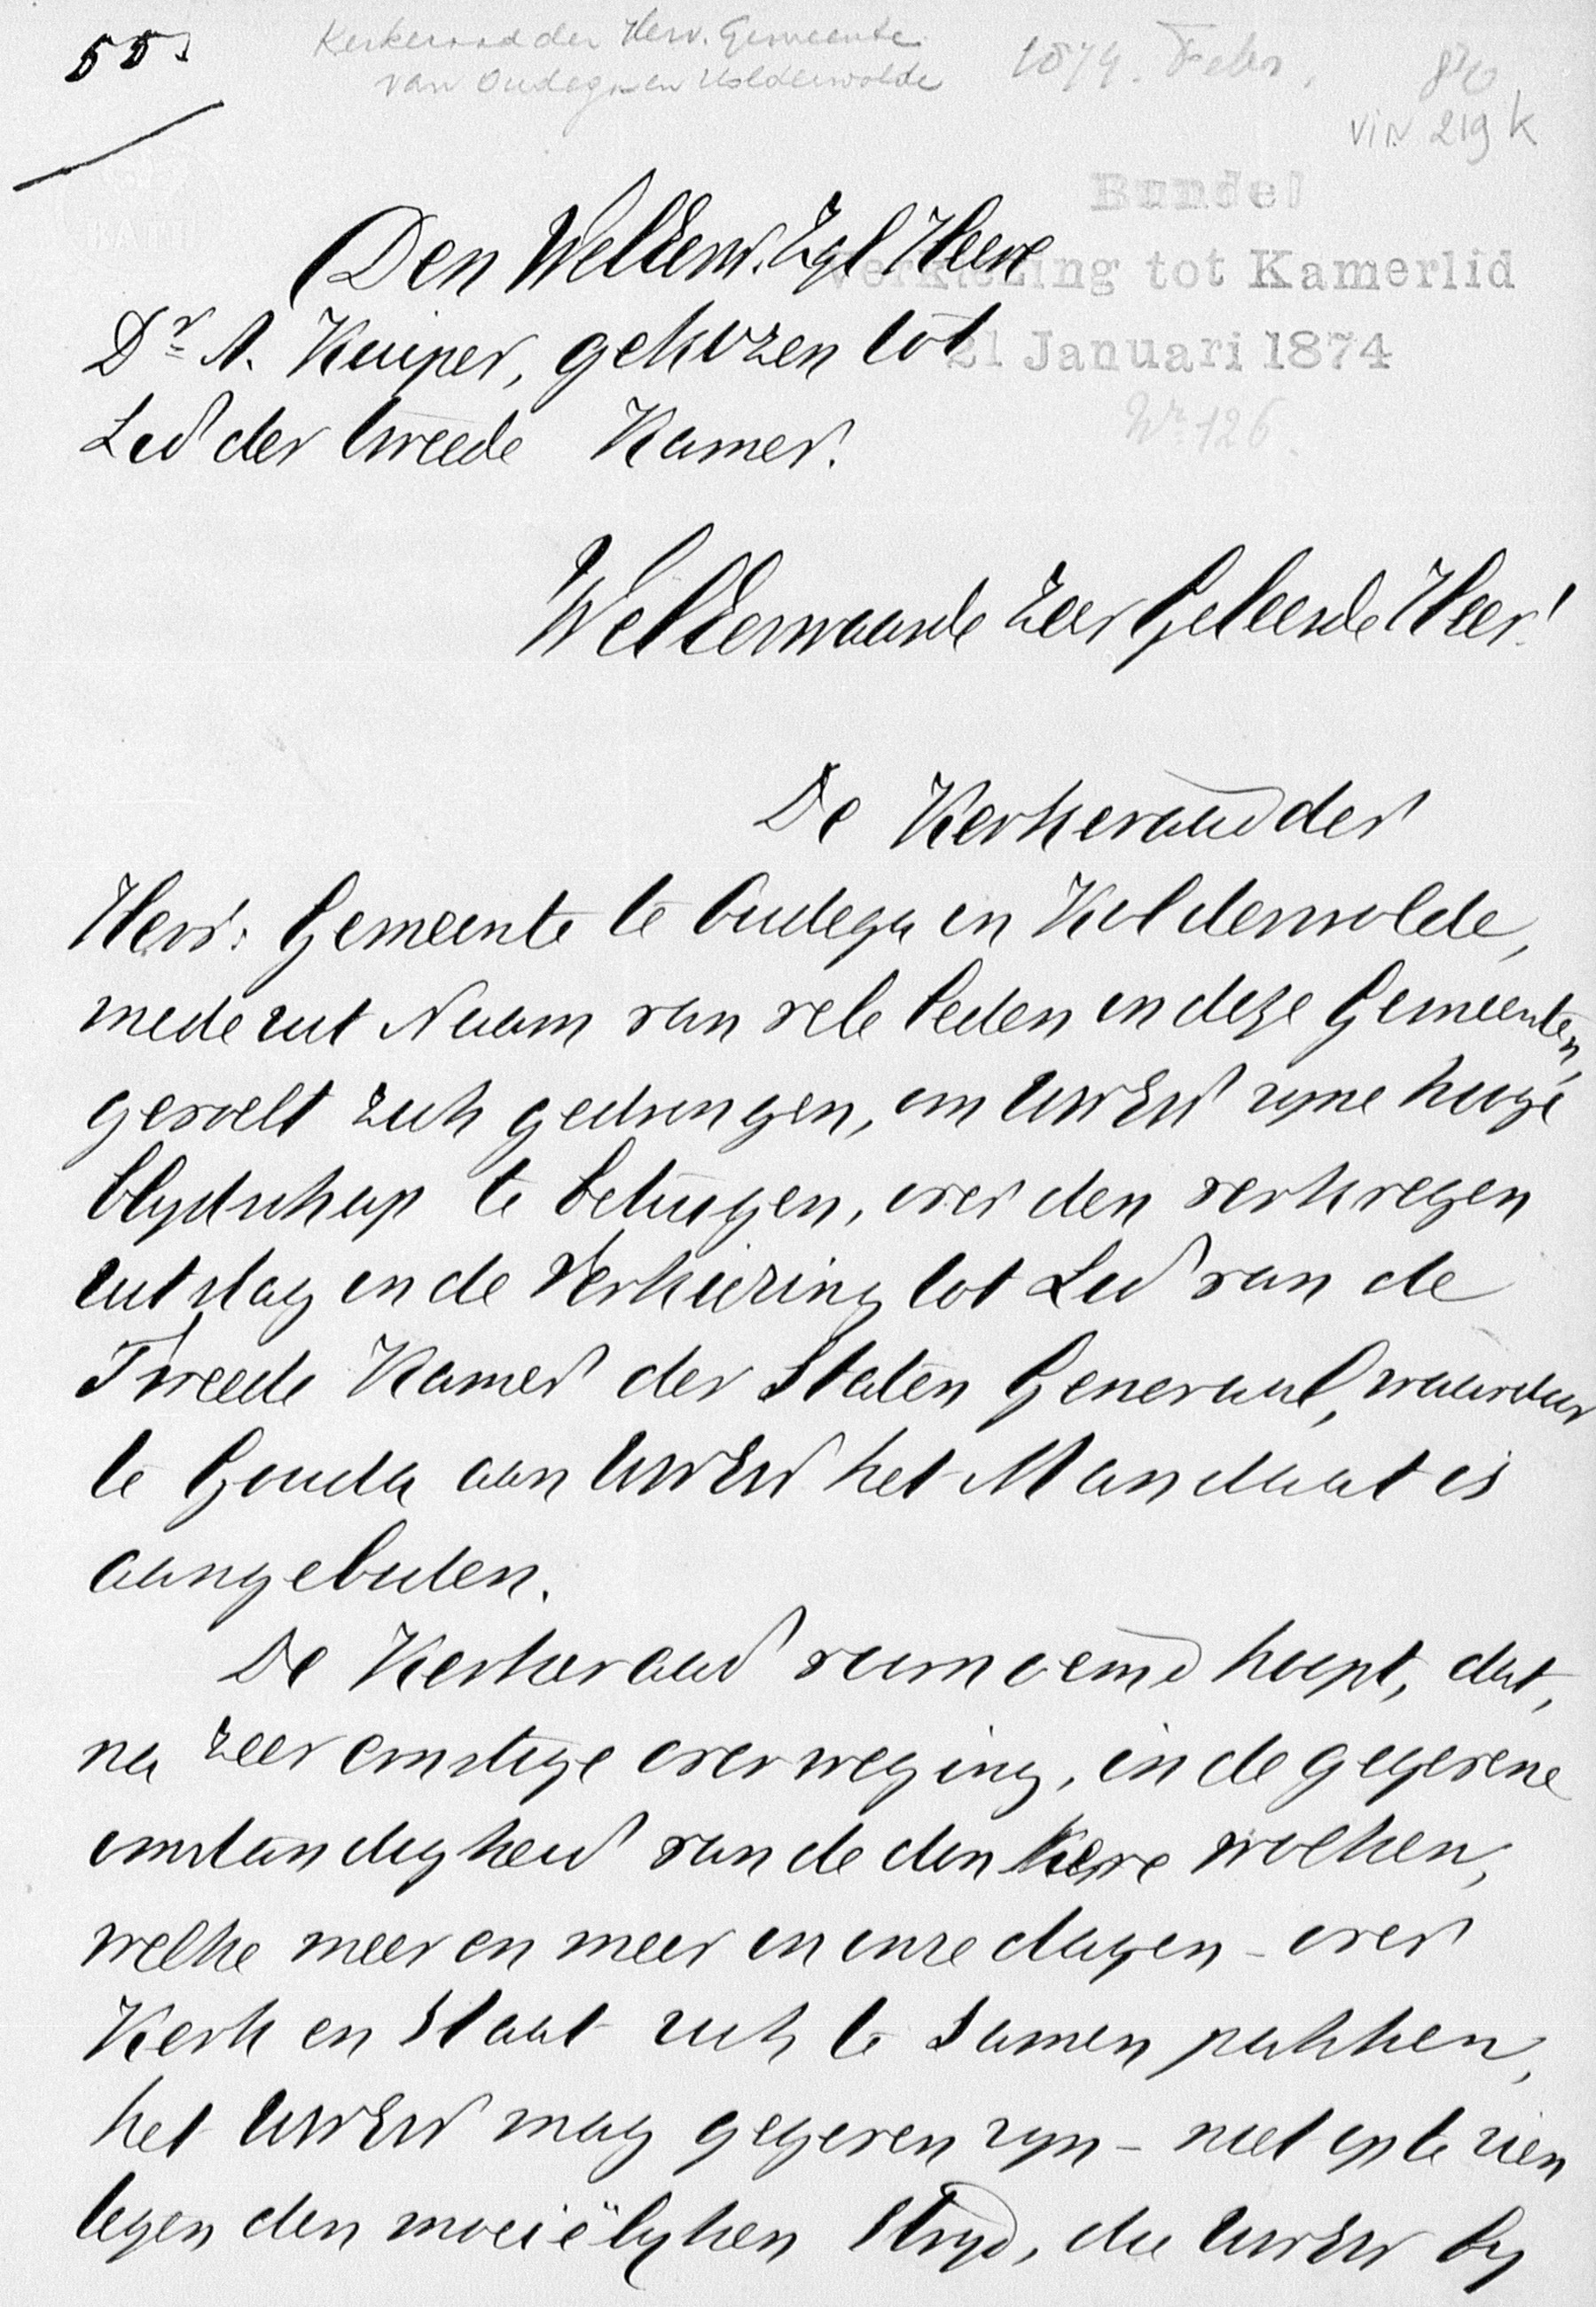 55.
Kerkeraad der Herv. Gemeente
van Oudega en Kolderwolde
1874. Febr.
VIN 219 k
Bundel
Verkiezing tot Kamerlid
21 Januari 1874
Nr. 126
Den WelEerw. Zgl Heere
Dr A. Kuiper, gekozen tot
Lid der tweede Kamer.
WelEerwaarde Zeer Geleerde Heer!
De Kerkeraad der
Herv: Gemeente te Oudega en Kolderwolde,
mede uit Naam van vele leden in deze Gemeenten,
gevoelt zich gedrongen, om UwEw zyne hooge
blydschap te betuigen, over den verkregen
uitslag in de Verkiezing tot Lid van de
Tweede Kamer der Staten Generaal, waardoor
te Gouda aan UwEw het Mandaat is
aangeboden.
De Kerkeraad voornoemd hoopt, dat,
na zeer ernstige overweging, in de gegevene
omstandigheid van de donkere wolken,
welke meer en meer in onze dagen - over
Kerk en Staat zich te samen pakken,
het UwEw mag gegeven zyn - niet op te zien
tegen den moeiëlyken Stryd, die UwEw by